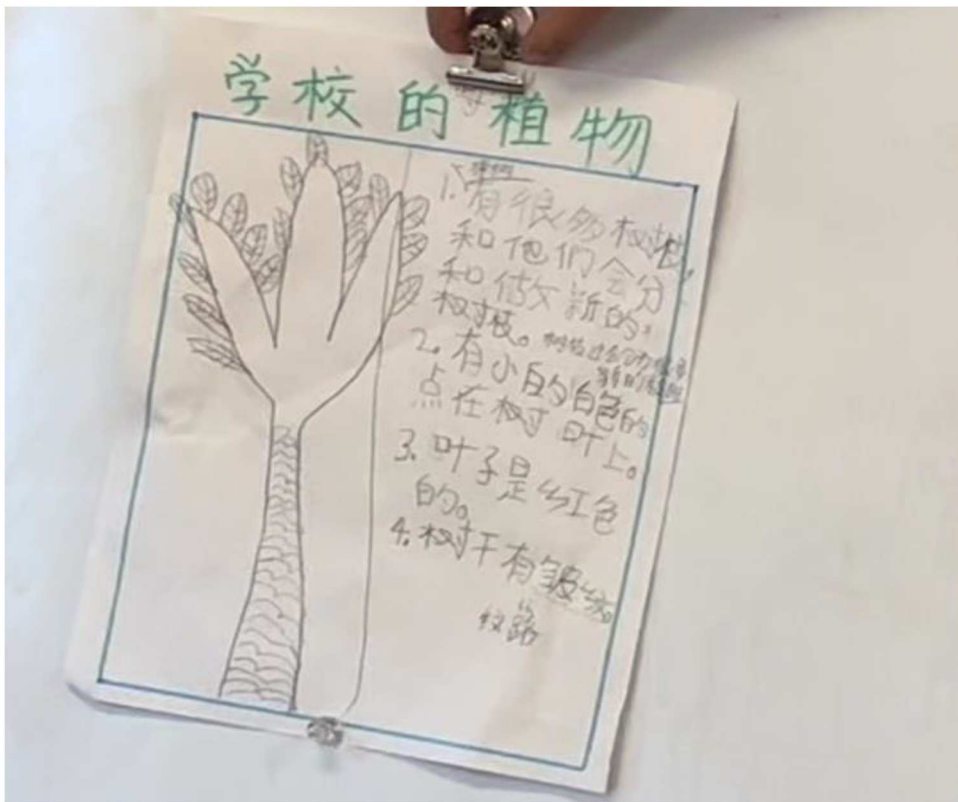 学校的植物
1. 有很多树枝,
和他们会分
和做新的,
树枝。
2. 有小的白色的
点在树叶上。
3. 叶子是红色
的。
4. 树干有皱纹。
纹路